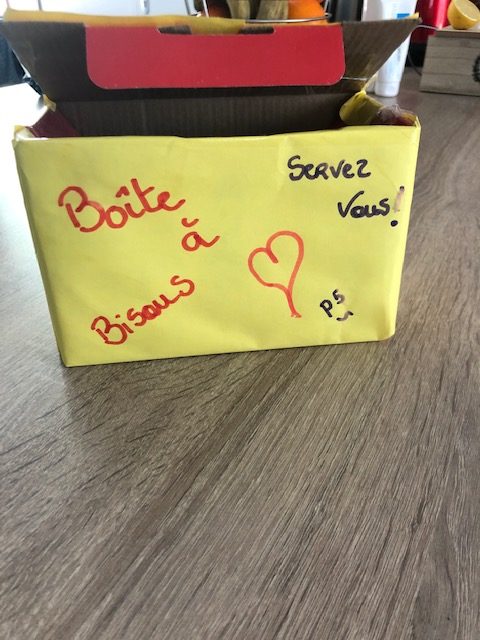 Boîte
à
Bisous
Servez
Vous!
PS